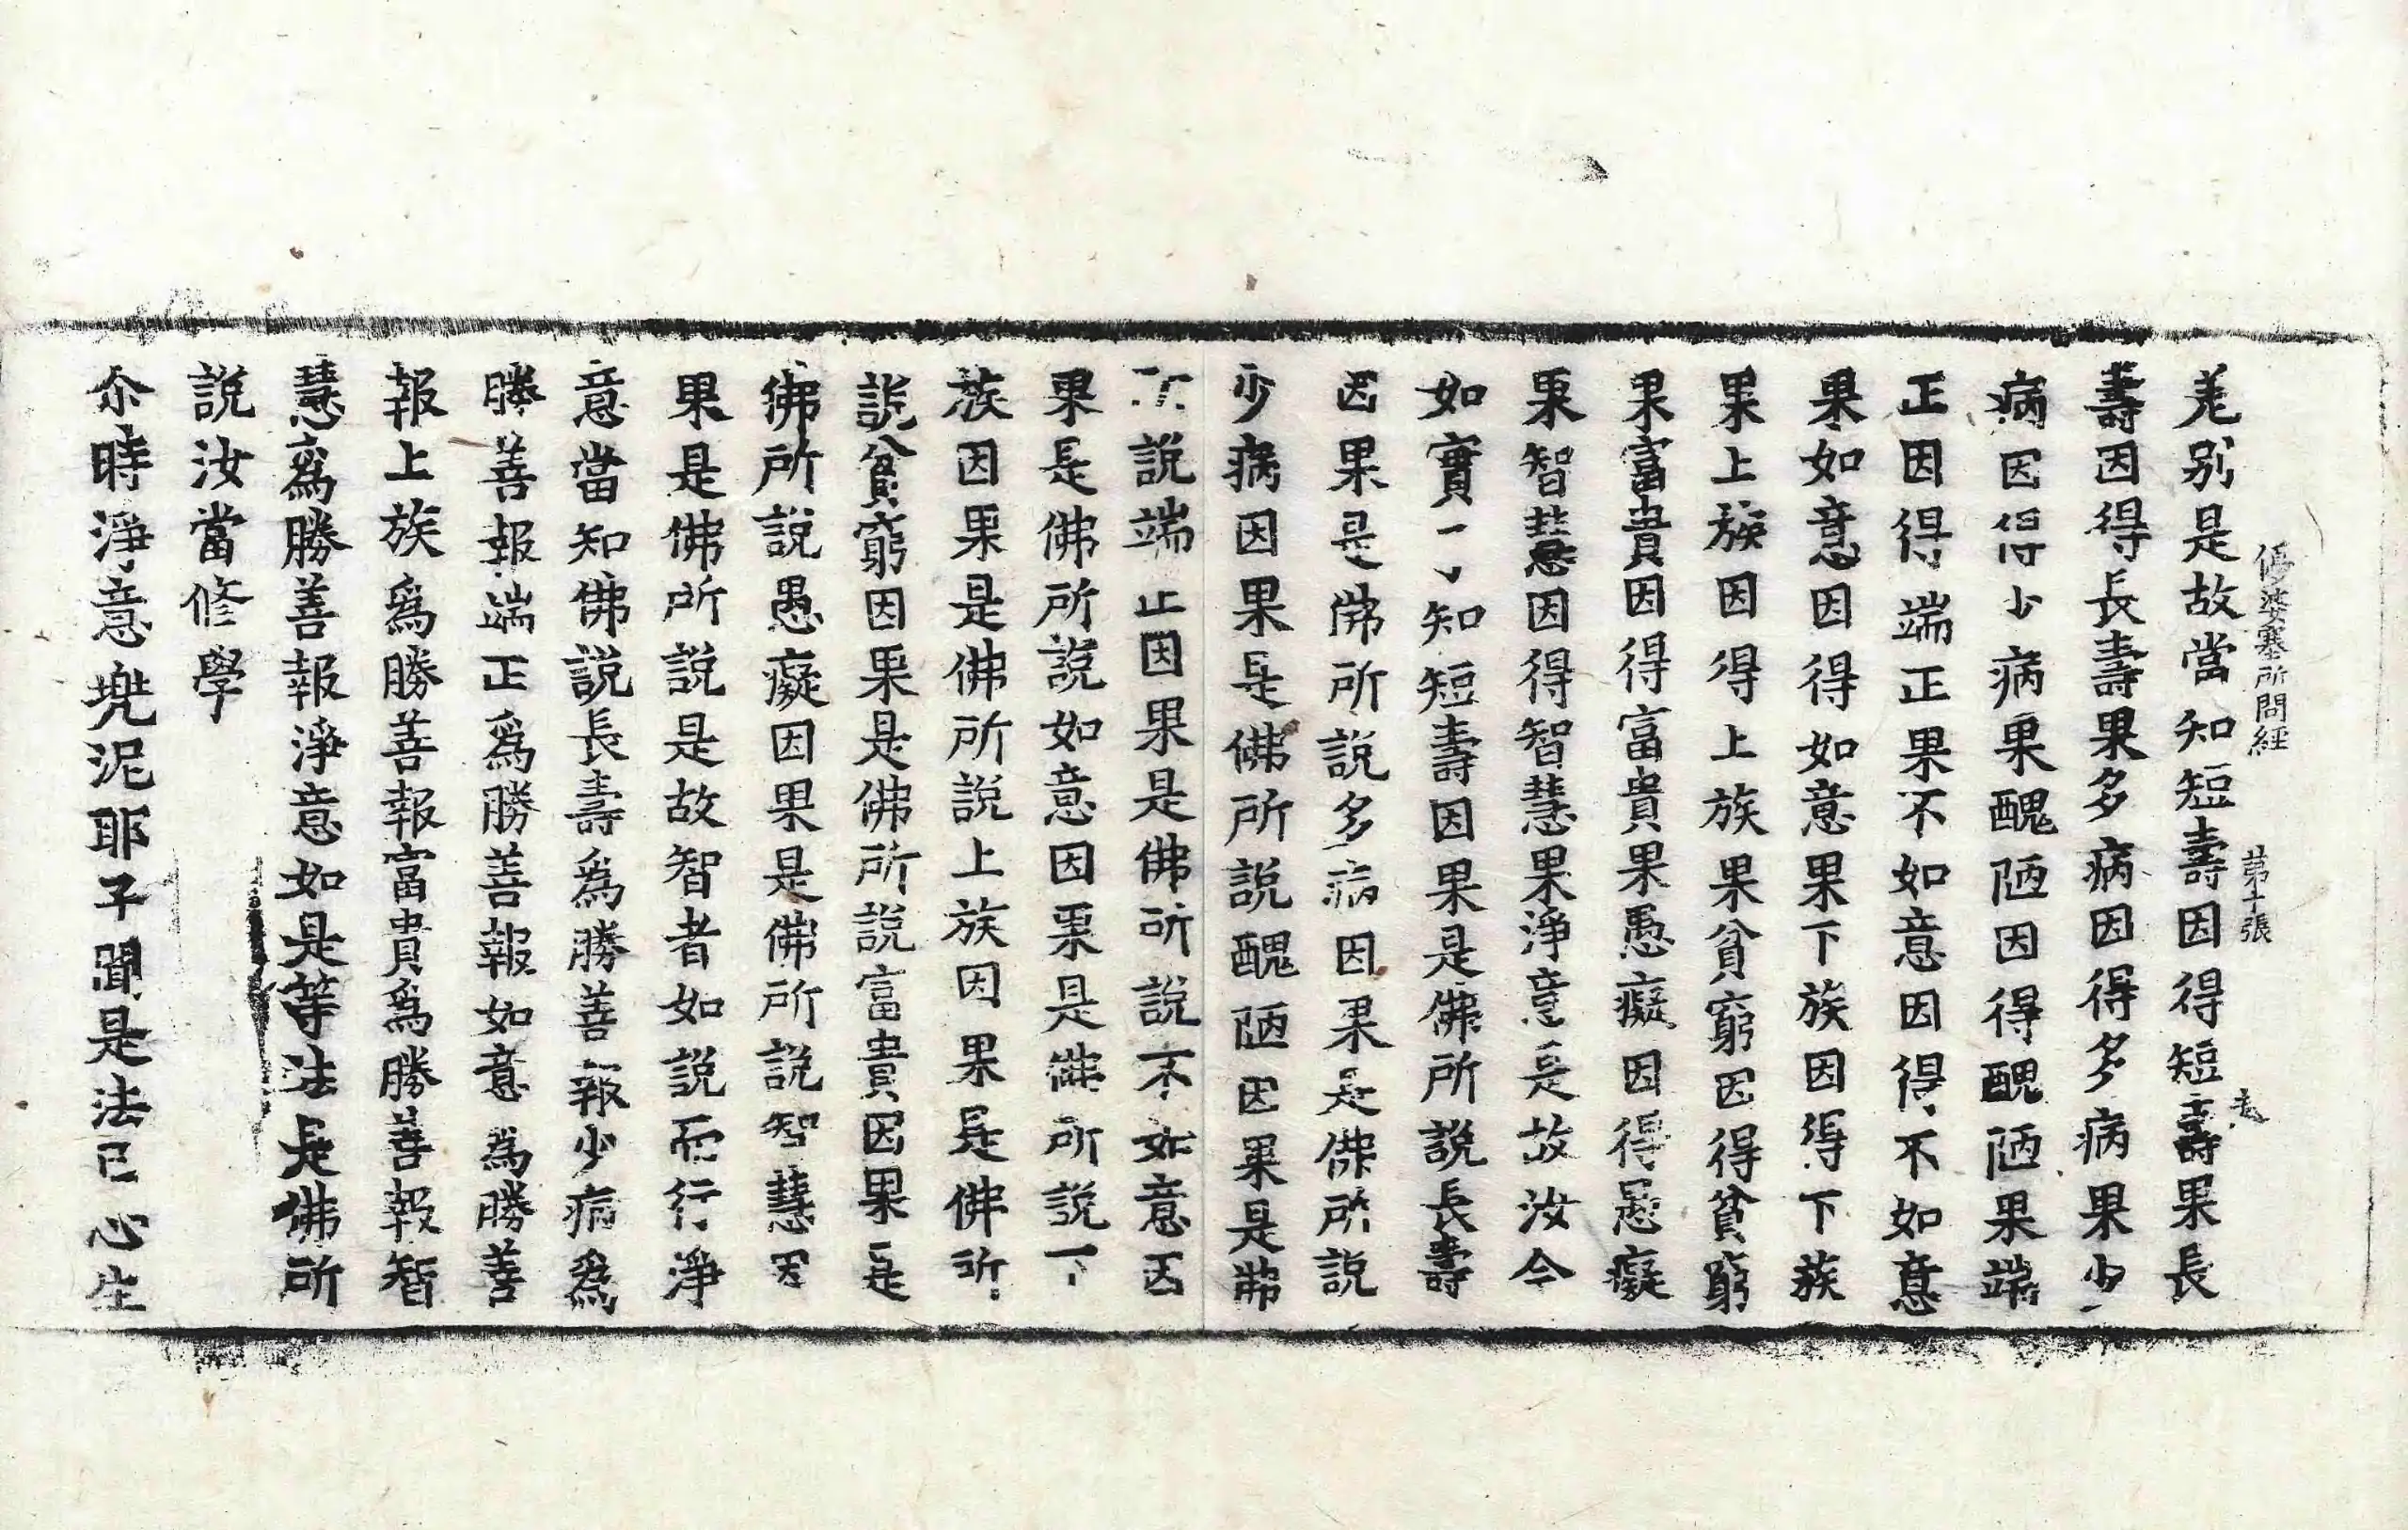 差別是故當知短壽因得短壽果長
優婆塞所問經 第十張
壽因得長壽果多病因得多病果少
病因得少病果醜陋因得醜陋果端
正因得端正果不如意因得不如意
果如意因得如意果下族因得下族
果上族因得上族果貧窮因得貧窮
果富貴因得富貴果愚癡因得愚癡
果智慧因得智慧果淨意是故汝今
如實知短壽因果是佛所說長壽
因果是佛所說多病因果是佛所說
少病因果是佛所說醜陋因果是佛
說端正因果是佛所說不如意因
果是佛所說如意因果是佛所說下
族因果是佛所說上族因果是佛所
說貧窮因果是佛所說富貴因果是
佛所說愚癡因果是佛所說智慧因
果是佛所說是故智者如說而行淨
意當知佛說長壽為勝善報少病為
勝善報端正為勝善報如意為勝善
報上族為勝善報富貴為勝善報智
慧為勝善報淨意如是等法是佛所
說汝當修學
尒時淨意兠泥耶子聞是法已心生